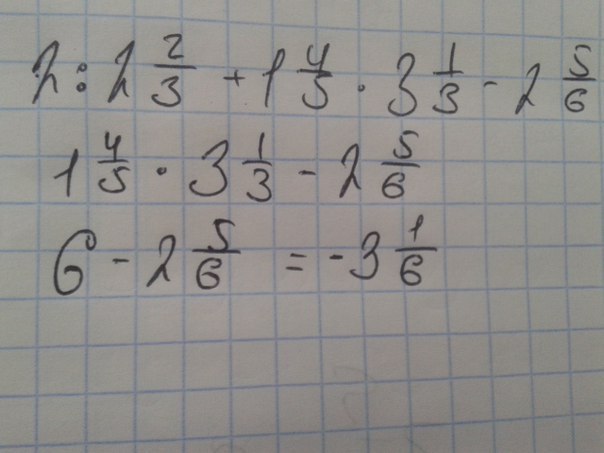 2 : 2 2/3 + 1 4/5 · 3 1/3 - 2 5/6
1 4/5 · 3 1/3 - 2 5/6
6 - 2 5/6 = - 3 1/6